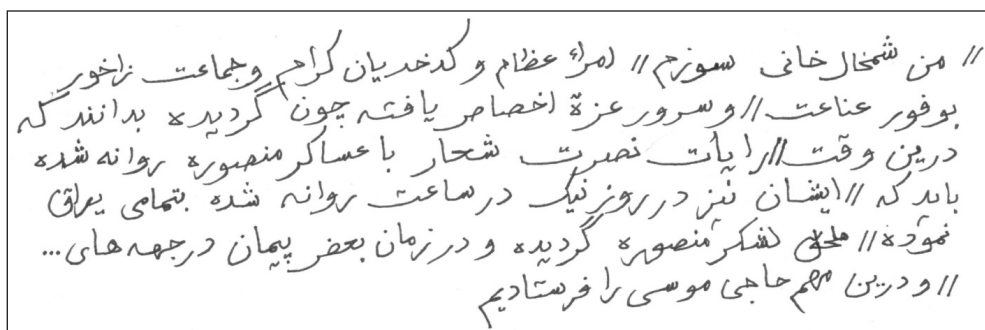 // من شمخال خانی سوزم // امراء عظام و کدخدیان کرام وجماعت زاخور
بوفور عناعت // وسرور عزة اخصاص یافته چون گردیده بدانند که
درین وقت // رایات نصرت شعار با عساکر منصوره روانه شده
باید که // ایشان نیز در روز نیک در ساعت روانه شده بتمامی یراق
نموده // ملحق لشکر منصوره گردیده و در زمان بعضر پیمان در جهه های ...
// و درین مهم حاجی موسی را فرستادیم